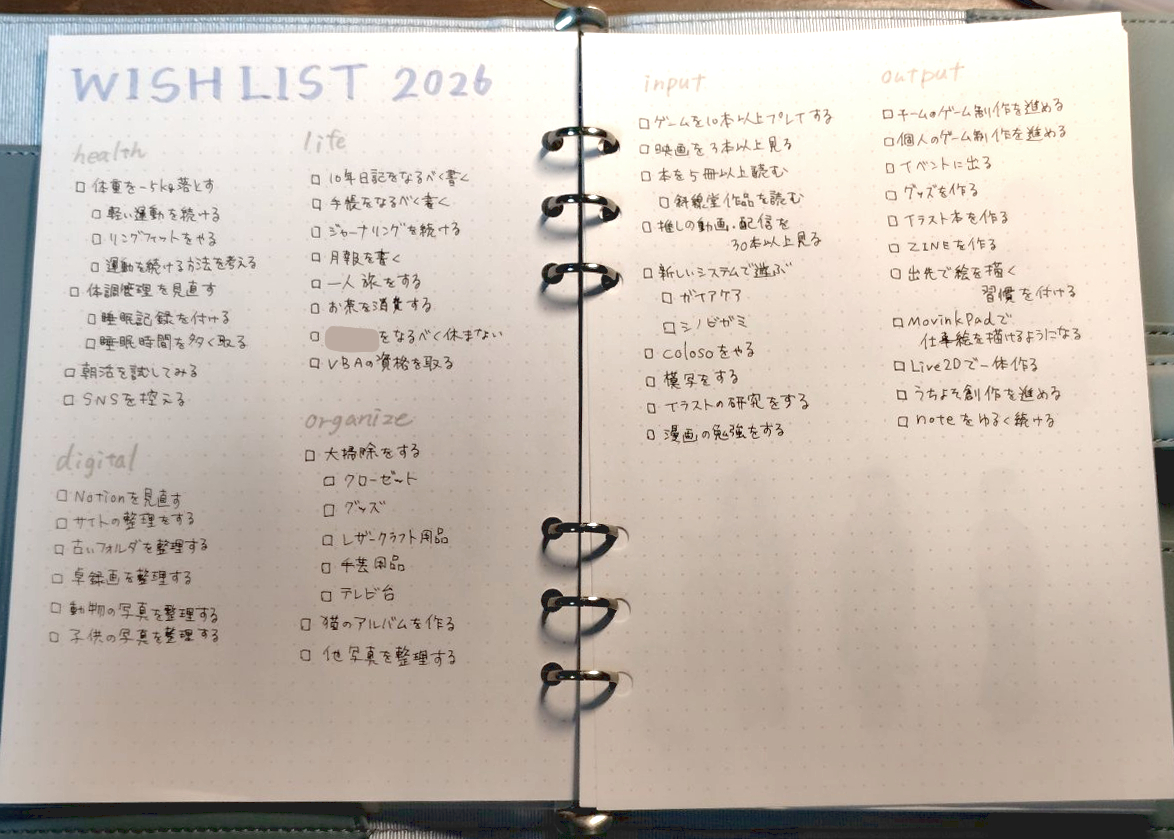 WISH LIST 2026
health
□ 体重を-5kg落とす
□ 軽い運動を続ける
□ リングフィットをやる
□ 運動を続ける方法を考える
□ 体調管理を見直す
□ 睡眠記録を付ける
□ 睡眠時間を多く取る
□ 朝活を試してみる
□ SNSを控える
digital
□ Notionを見直す
□ サイトの整理をする
□ 古いフォルダを整理する
□ 卓録画を整理する
□ 動物の写真を整理する
□ 子供の写真を整理する
life
□ 10年日記をなるべく書く
□ 手帳をなるべく書く
□ ジャーナリングを続ける
□ 月報を書く
□ 一人旅をする
□ お茶を消費する
□ をなるべく休まない
□ VBAの資格を取る
organize
□ 大掃除をする
□ クローゼット
□ グッズ
□ レザークラフト用品
□ 手芸用品
□ テレビ台
□ 猫のアルバムを作る
□ 他写真を整理する
input
□ ゲームを10本以上プレイする
□ 映画を3本以上見る
□ 本を5冊以上読む
□ 斜線堂作品を読む
□ 推しの動画・配信を
30本以上見る
□ 新しいシステムで遊ぶ
□ ガイアケア
□ シノビガミ
□ colosoをやる
□ 模写をする
□ イラストの研究をする
□ 漫画の勉強をする
output
□ チームのゲーム制作を進める
□ 個人のゲーム制作を進める
□ イベントに出る
□ グッズを作る
□ イラスト本を作る
□ ZINEを作る
□ 出先で絵を描く
習慣を付ける
□ MovinkPadで
仕事絵を描けるようになる
□ Live2Dで一体作る
□ うちよそ創作を進める
□ noteをゆるく続ける